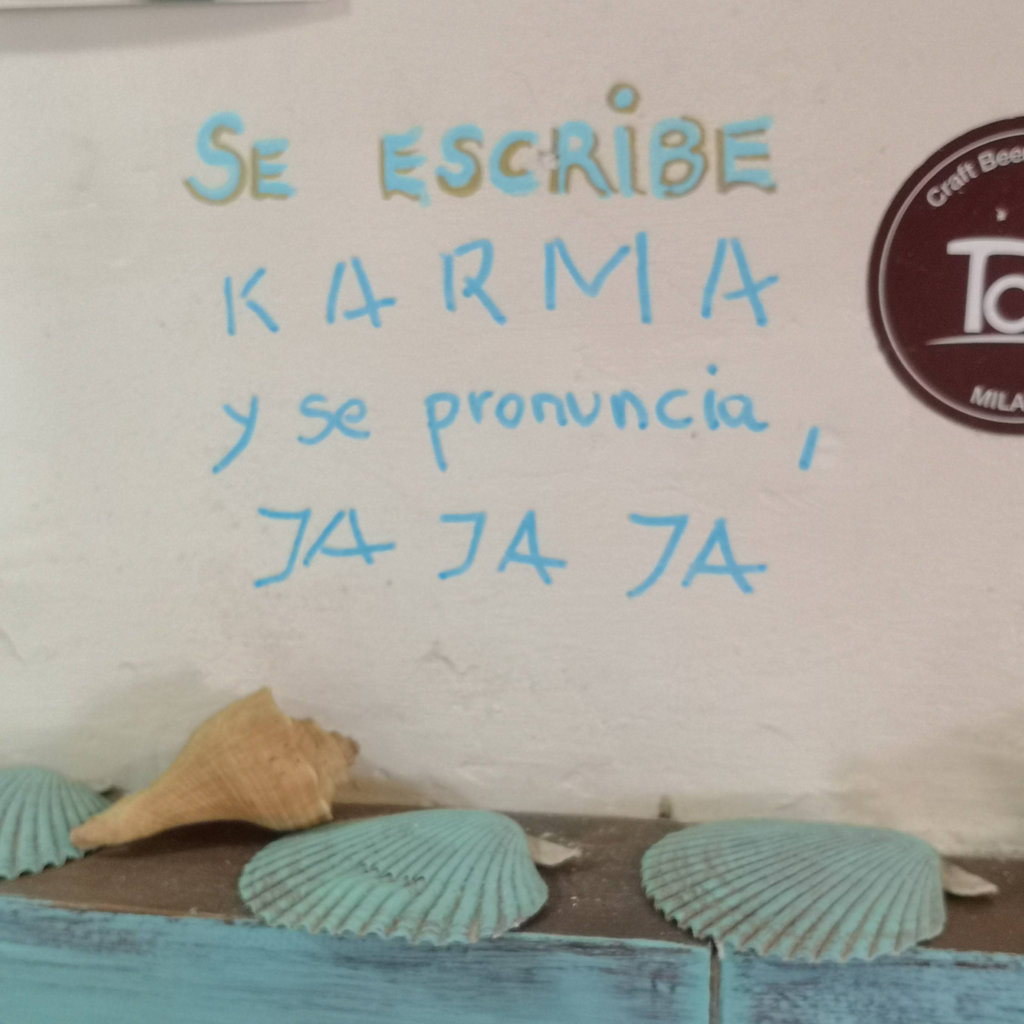 SE ESCRIBE
KARMA
y se pronuncia,
JA JA JA
Craft